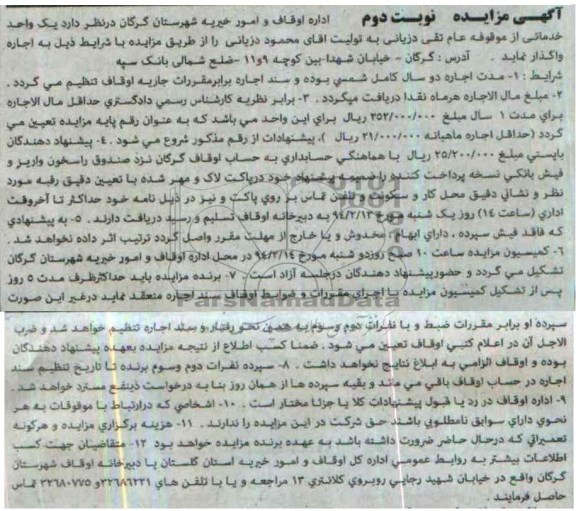 آگهی مزایده نوبت دوم اداره اوقاف و امور خیریه شهرستان گرگان درنظر دارد یک واحد
خدماتی از موقوفه عام تقی دزیانی به تولیت اقای محمود دزیانی را از طریق مزایده با شرایط ذیل به اجاره
واگذار نماید . آدرس : گرگان - خیابان شهدا-بین کوچه ۹و۱۱ -ضلع شمالی بانک سپه
شرایط : ۱- مدت اجاره دو سال کامل شمسی بوده و سند اجاره برابرمقررات جاریه اوقاف تنظیم می گردد .
۲- مبلغ مال الاجاره هرماه نقدا دریافت میگردد . ۳- برابر نظریه کارشناس رسمی دادگستری حداقل مال الاجاره
برای مدت ۱ سال مبلغ ۲۵۲/۰۰۰/۰۰۰ ریال برای این واحد می باشد که به عنوان رقم پایه مزایده تعیین می
گردد (حداقل اجاره ماهیانه ۲۱/۰۰۰/۰۰۰ ریال ). پیشنهادات از رقم مذکور شروع می شود .۴- پیشنهاد دهندگان
بایستی مبلغ ۲۵/۲۰۰/۰۰۰ ریال با هماهنگی حسابداری به حساب اوقاف گرگان نزد صندوق راسخون واریز و
فیش بانکی نسخه پرداخت کننده را ضمیمه پیشنهاد خود درپاکت لاک و مهر شده با تعیین دقیق رقبه مورد
نظر و نشانی دقیق محل کار و سکونت و تلفن تماس بر روی پاکت و نیز در ذیل نامه خود حداکثر تا آخروقت
اداری (ساعت ۱۴) روز یک شنبه مورخ ۹۴/۲/۱۳ به دبیرخانه اوقاف تسلیم و رسید دریافت دارند . ۵- به پیشنهادی
که فاقد فیش سپرده ، دارای ابهام ، مخدوش و یا خارج از مهلت مقرر واصل گردد ترتیب اثر داده نخواهد شد .
۶- کمیسیون مزایده ساعت ۱۰ صبح روزدو شنبه مورخ ۹۴/۲/۱۴ در محل اداره اوقاف و امور خیریه شهرستان گرگان
تشکیل می گردد و حضورپیشنهاد دهندگان درجلسه آزاد است . ۷- برنده مزایده باید حداکثرظرف مدت ۵ روز
پس از تشکیل کمیسیون مزایده با اجرای مقررات و ضوابط اوقاف سند اجاره منعقد نماید درغیر این صورت
سپرده او برابر مقررات ضبط و با نفرات دوم وسوم به همین نحو رفتار و سند اجاره تنظیم خواهد شد و ضرب
الاجل آن در اعلام کتبی اوقاف تعیین می شود . ضمنا کسب اطلاع از نتیجه مزایده بعهده پیشنهاد دهندگان
بوده و اوقاف الزامی به ابلاغ نتایج نخواهد داشت . ۸- سپرده نفرات دوم وسوم برنده تا تاریخ تنظیم سند
اجاره در حساب اوقاف باقی می ماند و بقیه سپرده ها از همان روز بنا به درخواست ذینفع مسترد خواهد شد .
۹- اداره اوقاف در رد یا قبول پیشنهادات کلا یا جزئا مختار است . ۱۰- اشخاصی که درارتباط با موقوفات به هر
نحوی دارای سوابق نامطلوبی باشند حق شرکت در این مزایده را ندارند . ۱۱- هزینه برگزاری مزایده و هرگونه
تعمیراتی که درحال حاضر ضرورت داشته باشد به عهده برنده مزایده خواهد بود ۱۲- متقاضیان جهت کسب
اطلاعات بیشتر به روابط عمومی اداره کل اوقاف و امور خیریه استان گلستان یا دبیرخانه اوقاف شهرستان
گرگان واقع در خیابان شهید رجایی روبروی کلانتری ۱۳ مراجعه و یا با تلفن های ۳۲۶۸۶۲۳۱و ۳۲۶۸۰۷۷۵ تماس
حاصل فرمایند .
ParsNamadData